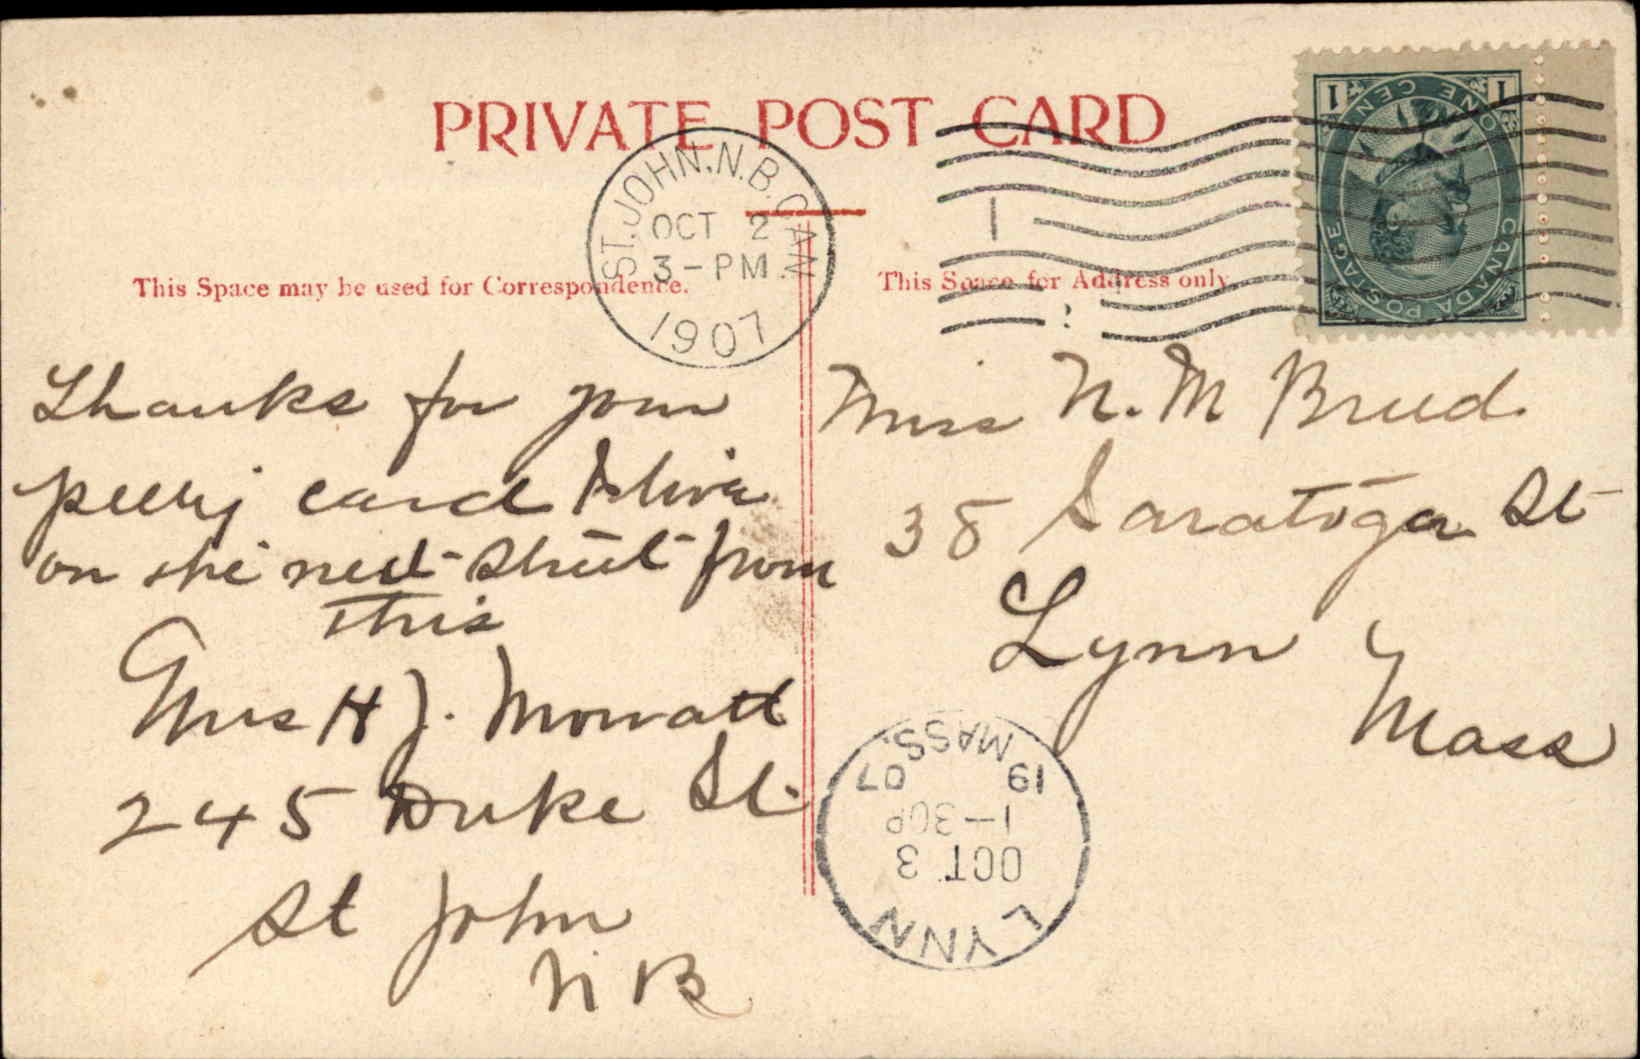 PRIVATE POST CARD
ST. JOHN, N.B. CAN.
OCT 2
3-PM
1907
1
CANADA POSTAGE
ONE CENT
1 1
This Space may be used for Correspondence.
This Space for Address only
Thanks for your
card I live
on the next street from
this
Mrs H J. Mowatt
245 Duke St.
St John
N B
Miss N. M Breed
38 Saratoga St
Lynn
Mass
LYNN
OCT 3
1-30P
19 07
MASS.